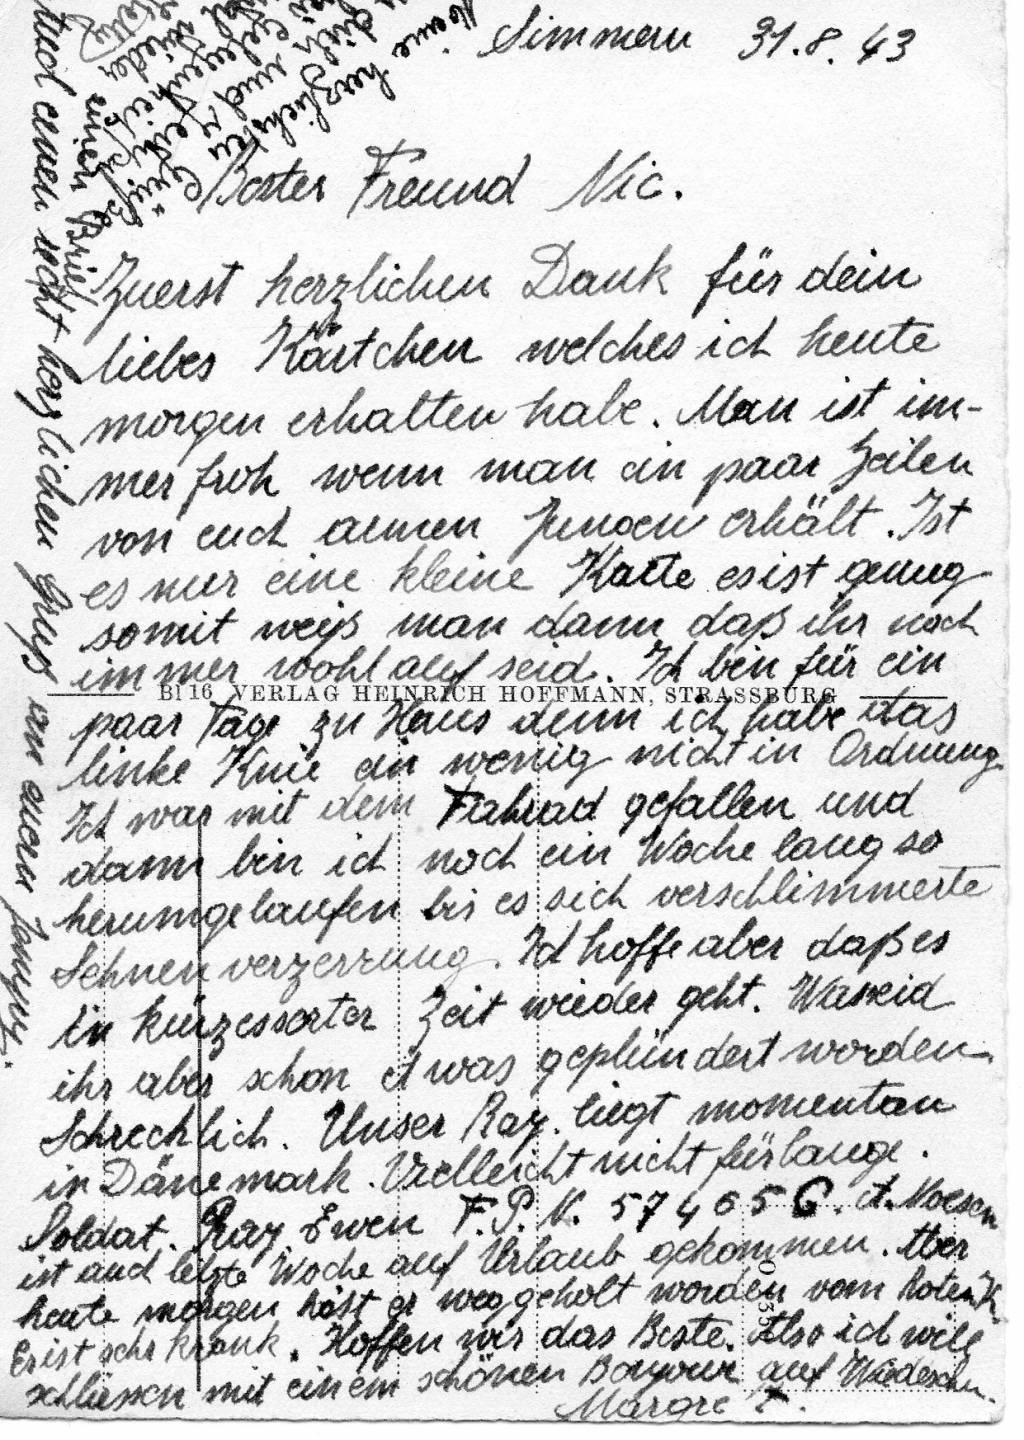 Simmern 31.8.43
Bester Freund Nic.
Zuerst herzlichen Dank für dein
liebes Kärtchen welches ich heute
morgen erhalten habe. Man ist im-
mer froh wenn man ein paar Zeilen
von euch armen Jungen erhält. Ist
es nur eine kleine Karte es ist genug
somit weiß man dann daß ihr noch
immer wohlauf seid. Ich bin für ein
Bl 16 VERLAG HEINRICH HOFFMANN, STRASSBURG
paar Tage zu Haus denn ich habe das
linke Knie ein wenig nicht in Ordnung
Ich war mit dem Fahrad gefallen und
dann bin ich noch ein Woche lang so
herumgelaufen bis es sich verschlimmerte
Sehnenverzerrung. Ich hoffe aber daß es
in kürzesserter Zeit wieder geht. Wa seid
ihr aber schon etwas geplündert worden.
Schrecklich. Unser Ray. liegt momentan
in Dänemark. Vielleicht nicht für lange.
Soldat. Ray Ewen F.P.N. 57465 G. A. Noesen
ist auch letzte Woche auf Urlaub gekommen. Aber
heute morgen ist er weggeholt worden vom Roten K.
Er ist sehr krank. Hoffen wir das Beste. Also ich will
schliessen mit einem schönen Bonjour auf Wiedesehn.
Margre F.
und einen recht herzlichen Gruß von
einen Brief
Meine herzlichsten Grüße